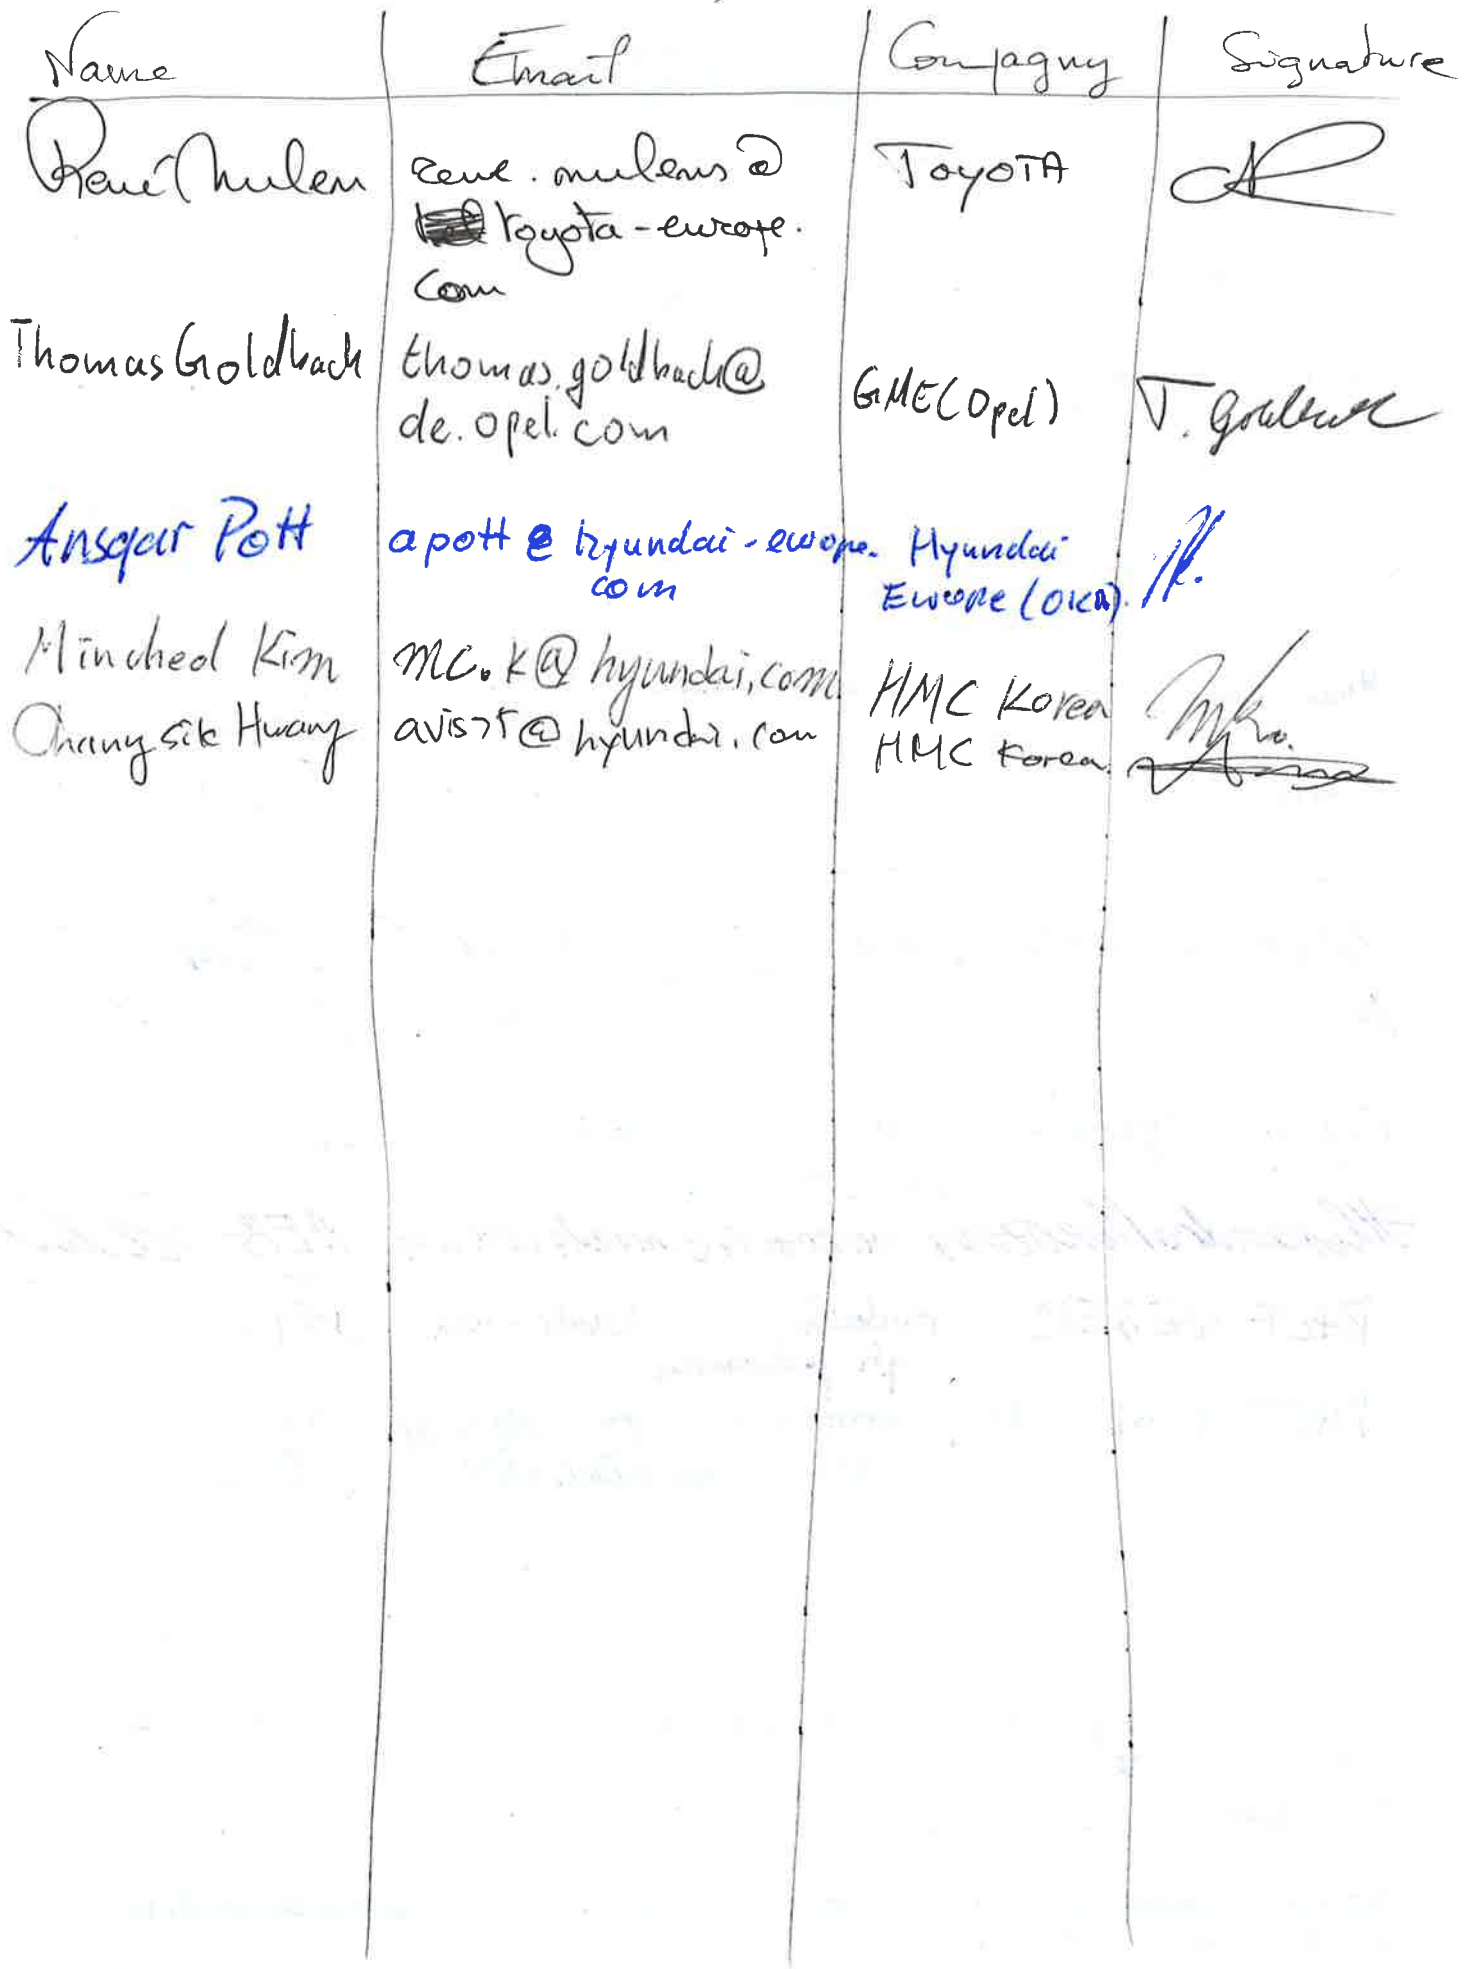 Name Email Compagny Signature
René Mulen rene.mulens@ TOYOTA
toyota-europe.
com
Thomas Goldbach thomas.goldbach@ GME(Opel) T. Goldbach
de.opel.com
Ansgar Pott apott@hyundai-europe. Hyundai
com Europe
Mincheol Kim mc.k@hyundai.com HMC Korea
Changsik Hwang @hyundai.com HMC Korea.